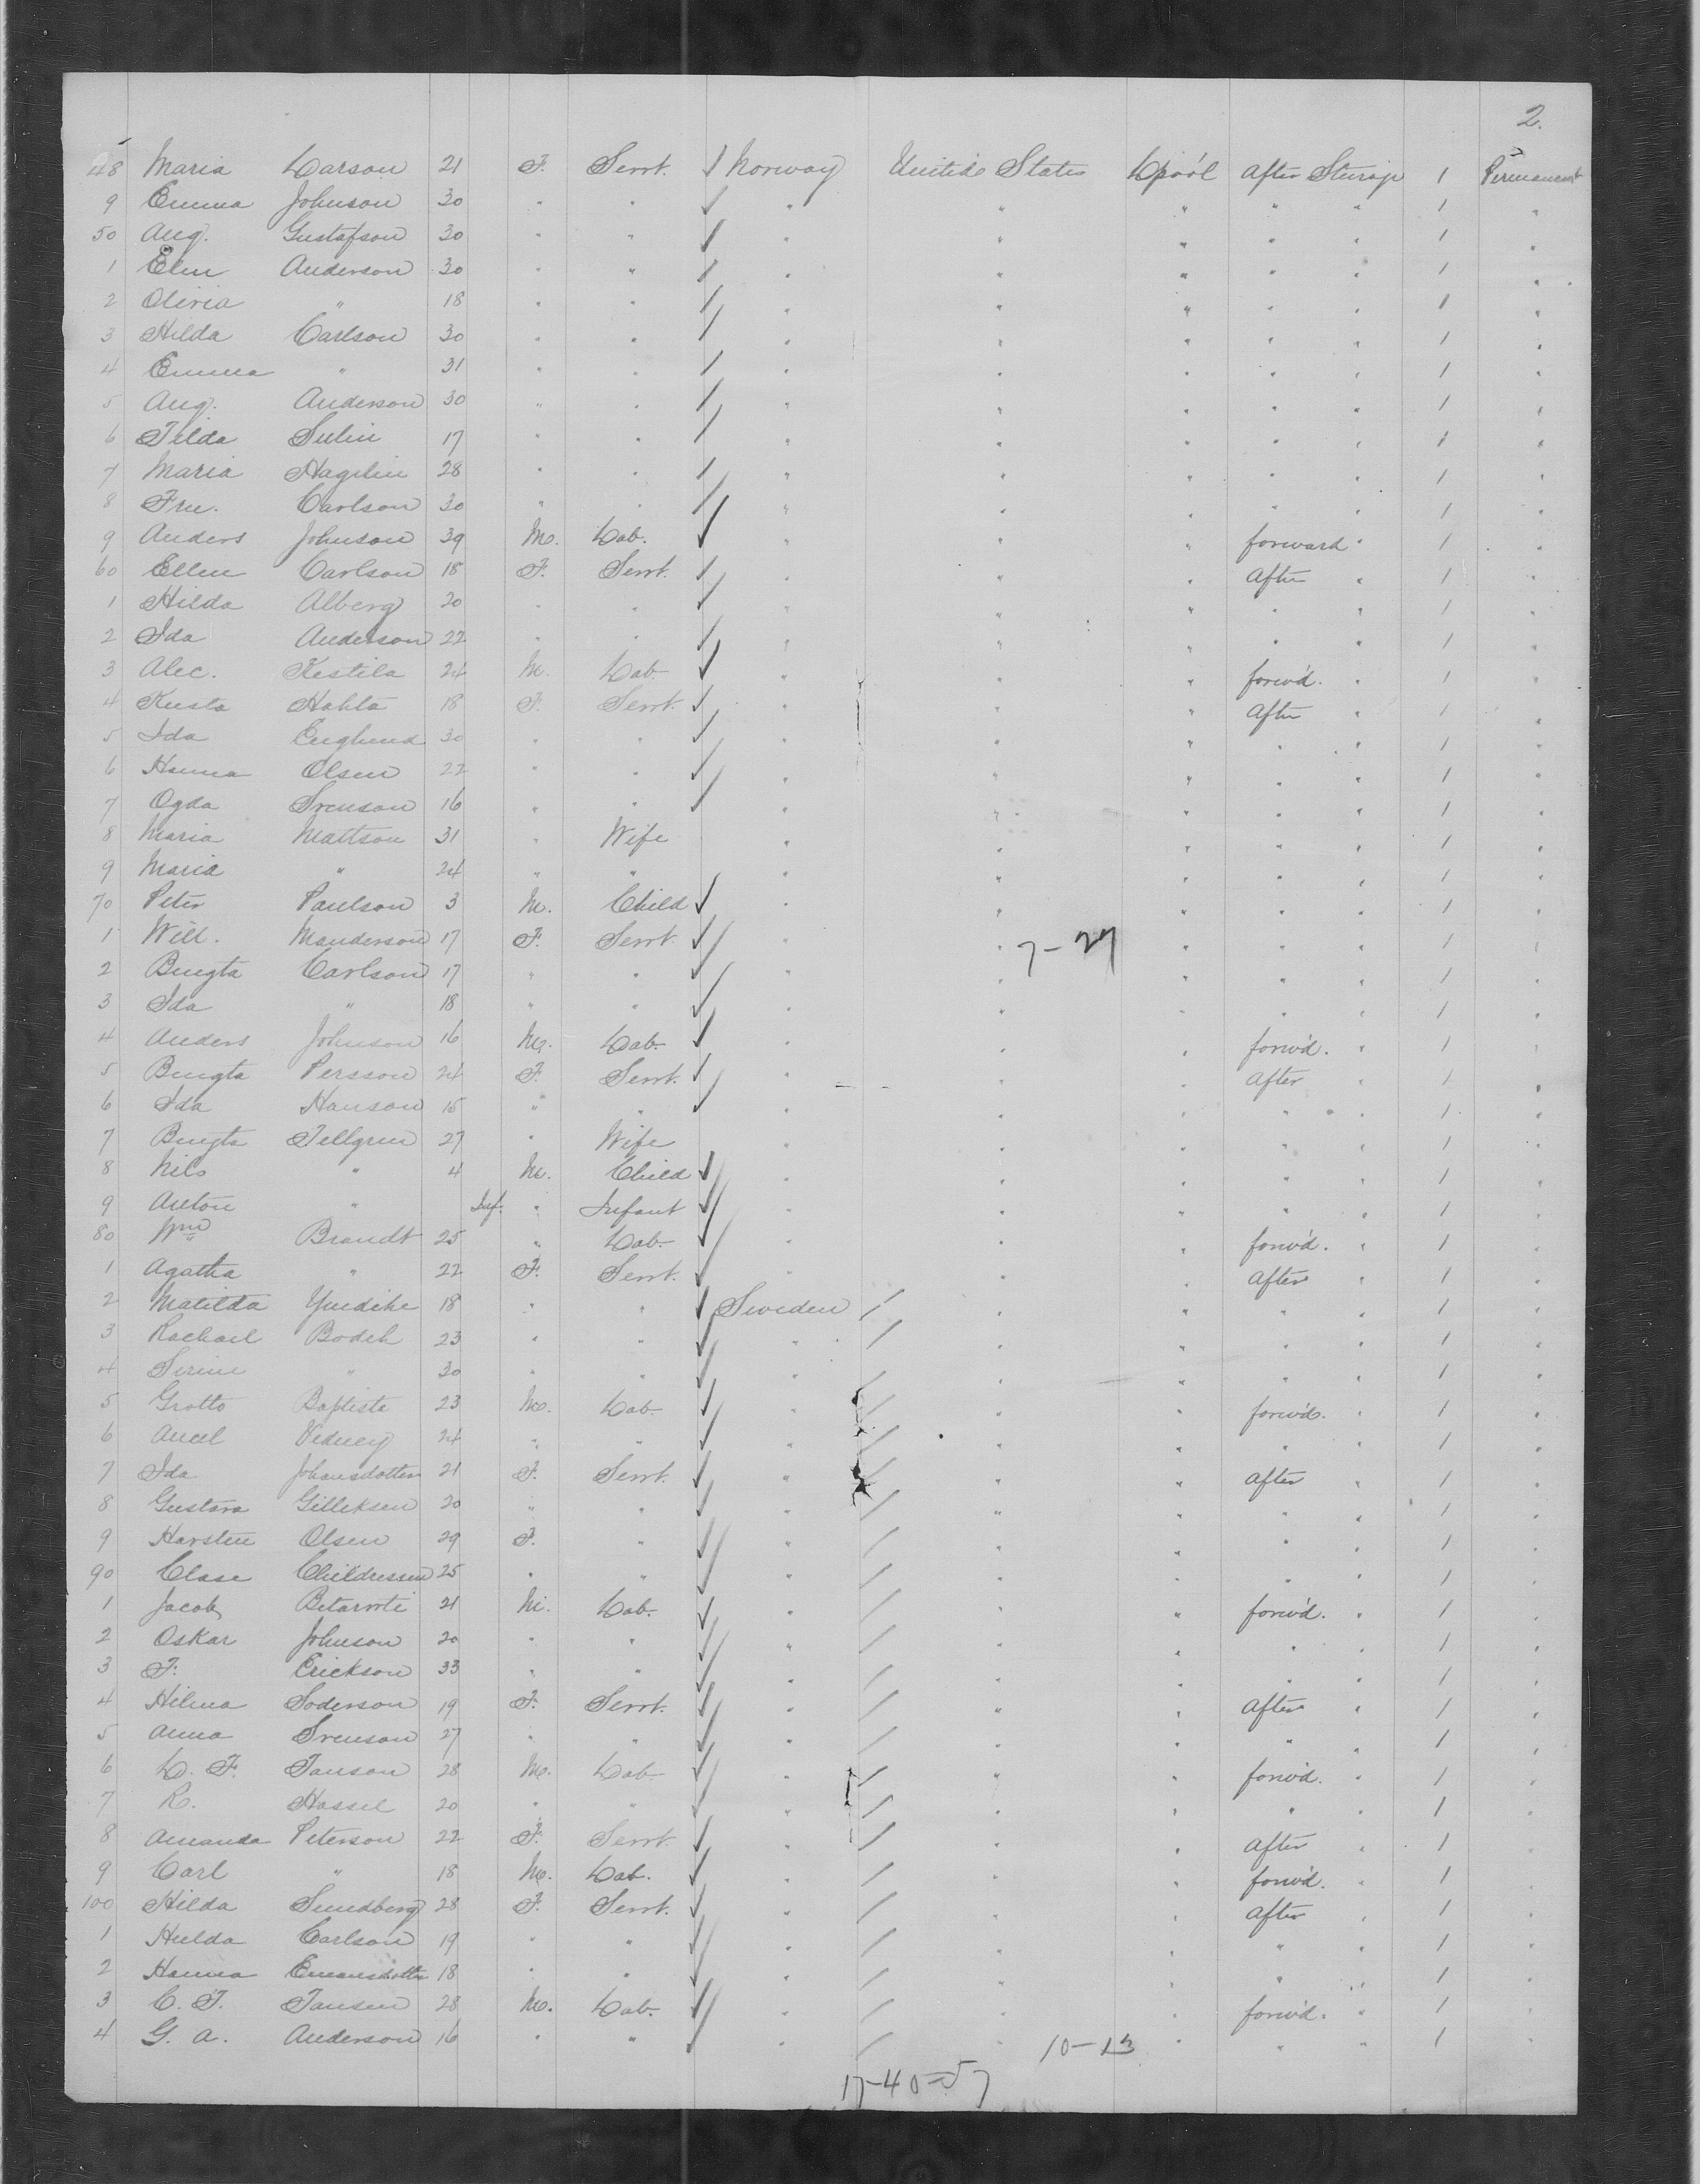 2.
48 Maria Larson 21 F. Servt. / Norway United States L'pool After Sturage 1 Permanent
9 Emma Johnson 30 " " / " " " " " 1 "
50 Aug. Gustafson 30 " " / " " " " " 1 "
1 Elin Anderson 30 " " / " " " " " 1 "
2 Olivia " 18 " " / " " " " " 1 "
3 Hilda Carlson 30 " " / " " " " " 1 "
4 Emma " 31 " " / " " " " " 1 "
5 Aug. Anderson 30 " " / " " " " " 1 "
6 Tilda Sulin 17 " " / " " " " " 1 "
7 Maria Hagelin 28 " " / " " " " " 1 "
8 Fru. Carlson 30 " " / " " " " " 1 "
9 Anders Johnson 39 M. Lab. ✓ " " " forward " 1 "
60 Ellen Carlson 18 F. Servt. / " " " After " 1 "
1 Hilda Alberg 20 " " / " " " " " 1 "
2 Ida Anderson 22 " " / " " " " " 1 "
3 Alec. Kestila 24 M. Lab. ✓ " " " forw'd. " 1 "
4 Kusta Hahta 18 F. Servt. / " " " After " 1 "
5 Ida Englund 30 " " / " " " " " 1 "
6 Hanna Olsen 22 " " / " " " " " 1 "
7 Ogda Svenson 16 " " / " " " " " 1 "
8 Maria Mattson 31 " Wife " " " " " 1 "
9 Maria " 24 " " " " " " " 1 "
70 Peter Paulson 3 M. Child ✓ " " " " " 1 "
1 Will. Manderson 17 F. Servt. ✓ " " 7-27 " " " 1 "
2 Bengta Carlson 17 " " / " " " " " 1 "
3 Ida " 18 " " / " " " " " 1 "
4 Anders Johnson 16 M. Lab. ✓ " " " forw'd. " 1 "
5 Bengta Persson 24 F. Servt. / " " " After " 1 "
6 Ida Hanson 15 " " / " " " " " 1 "
7 Bengta Tellgren 27 " Wife " " " " " 1 "
8 Nils " 4 M. Child ✓ " " " " " 1 "
9 Anton " Inf. " Infant ✓ " " " " " 1 "
80 Wm Brandt 25 " Lab. ✓ " " " forw'd. " 1 "
1 Agatha " 22 F. Servt. ✓ " " " After " 1 "
2 Matilda 18 " " ✓ Sweden / " " " " 1 "
3 Rachael Bodeh 23 " " ✓ " / " " " " 1 "
4 Serine " 30 " " ✓ " / " " " " 1 "
5 Grotto Baptiste 23 M. Lab. ✓ " / " " forw'd. " 1 "
6 Ancel Vedney 24 " " ✓ " / " " " " 1 "
7 Ida Johansdotter 21 F. Servt. ✓ " / " " After " 1 "
8 Gustava Gilleksen 20 " " ✓ " / " " " " 1 "
9 Karsten Olsen 29 F. " ✓ " / " " " " 1 "
90 Clase Childressen 25 " " ✓ " / " " " " 1 "
1 Jacob 21 M. Lab. ✓ " / " " forw'd. " 1 "
2 Oskar Johnson 20 " " ✓ " / " " " " 1 "
3 F. Erickson 33 " " ✓ " / " " " " 1 "
4 Hilma Soderson 19 F. Servt. ✓ " / " " After " 1 "
5 Anna Svenson 27 " " ✓ " / " " " " 1 "
6 L. F. Janson 28 M. Lab. ✓ " / " " forw'd. " 1 "
7 R. Hassel 20 " " ✓ " / " " " " 1 "
8 Amanda Peterson 22 F. Servt. ✓ " / " " After " 1 "
9 Carl " 18 M. Lab. ✓ " / " " forw'd. " 1 "
100 Hilda Sundberg 28 F. Servt. ✓ " / " " After " 1 "
1 Hulda Carlson 19 " " ✓ " / " " " " 1 "
2 Hanna Emansdotter 18 " " ✓ " / " " " " 1 "
3 C. F. Jansen 28 M. Lab. ✓ " / " " forw'd. " 1 "
4 G. A. Anderson 16 " " ✓ " / " " " " 1 "
10-13
17-40-57